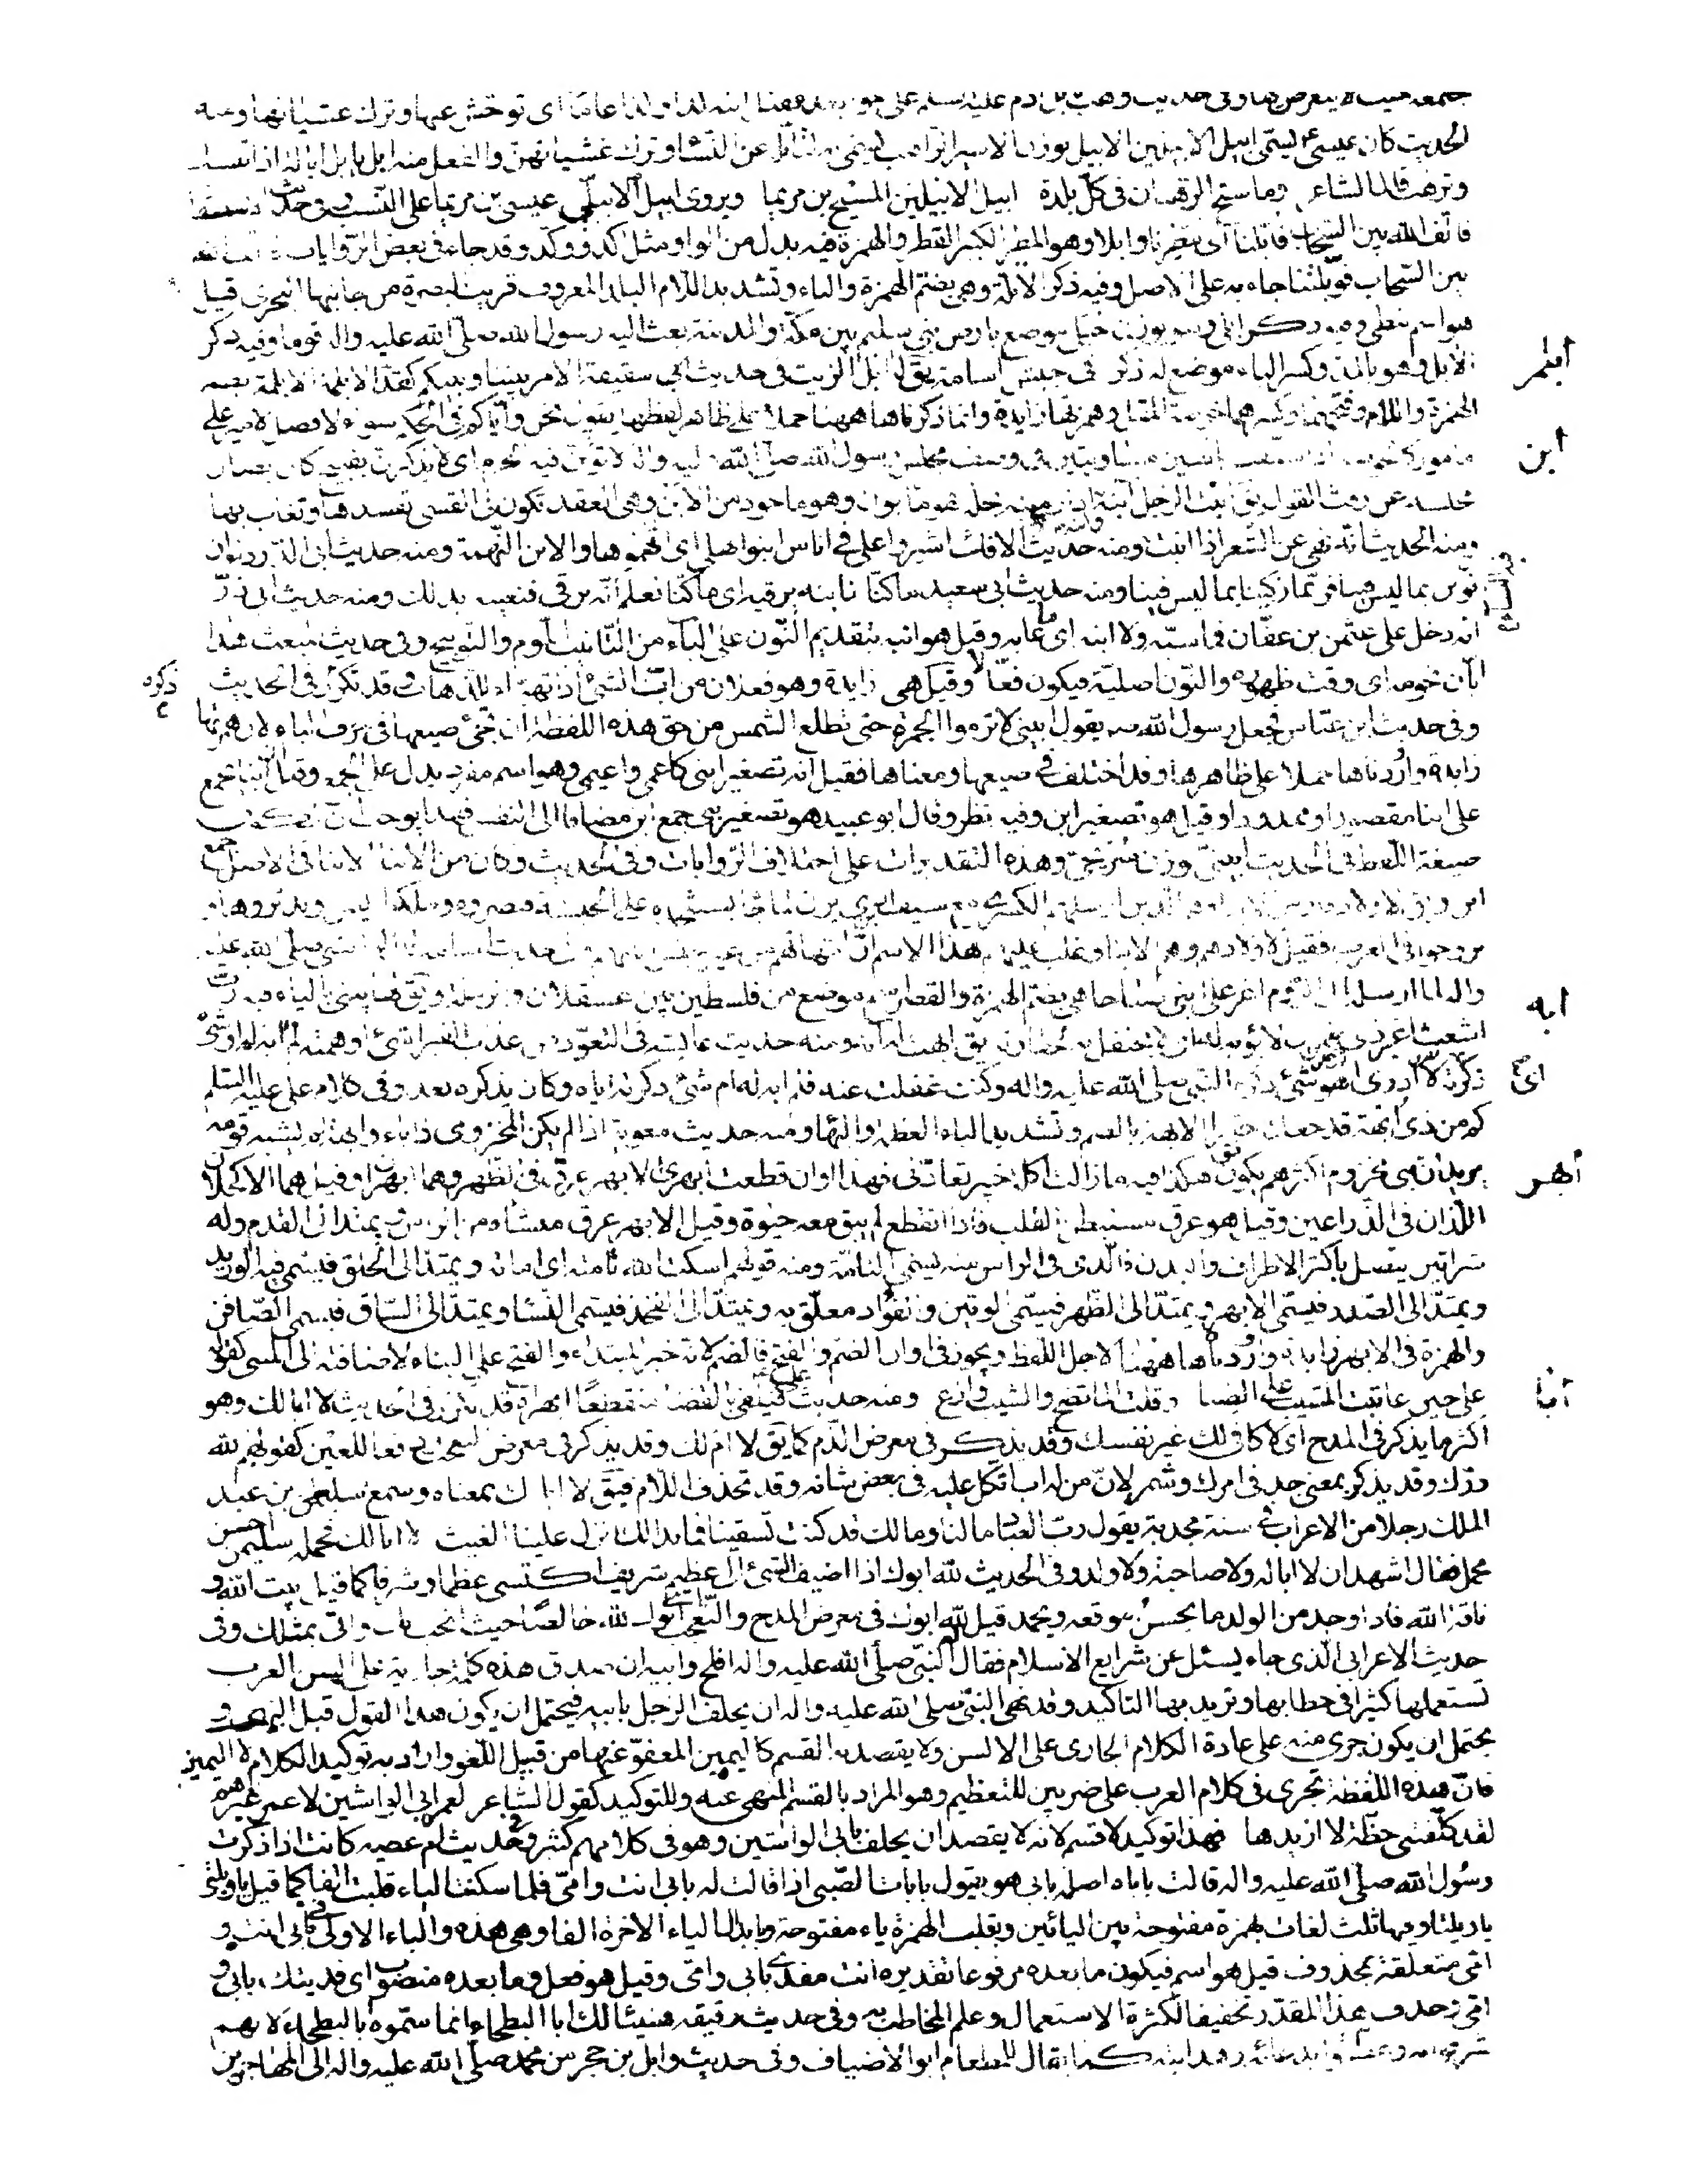 جمعه حيث لا يتعرض لها وفى حديث وهب تابل ادم عليه السلم على حوا بعد مقتل ابنه كذا وكذا عاما اى توحش عنها وترك غشيانها ومنه
الحديث كان عيسى ع يسمّى ابيل الابيلين الابيل بوزن الامير الراهب سمّى به لتأبّله عن النّساء وترك غشيانهنّ والفعل منه ابل يابل ابالة اذا تنسك
وترهب قال الشاعر وما سبّح الرهبان فى كلّ بلدة ابيل الابيلين المسيح بن مريما ويروى ابيل الابيليين عيسى بن مريما على النّسب وفى حديث الاستسقا
فالّف الله بين السّحاب فابلنا اى مطرنا وابلا وهو المطر الكبير القطر والهمزة فيه بدل من الواو مثل اكد ووكّد وقد جاء فى بعض الرّوايات فالّف الله
بين السّحاب فوبلتنا جاء به على الاصل وفيه ذكر الابلّة وهى بضمّ الهمزة والباء وتشديد اللّام البلد المعروف قرب البصرة من جانبها البحرى قيل
هو اسم نبطى وفيه ذكر ابلى وهو بوزن حبلى موضع بارض بنى سليم بين مكّة والمدينة بعث اليه رسول الله صلّى الله عليه واله قوما وفيه ذكر
الابل وهو بالمدّ وكسر الباء موضع له ذكر فى جيش اسامة يقال له ابل الزيت
ابلم
فى حديث السقيفة الامر بيننا وبينكم كقدّ الابلمة الابلمة بضم
الهمزة واللّام وفتحهما وكسرهما خوصة المقل وهمزتها زايدة وانما ذكرناها ههنا حملا على ظاهر لفظها يقول نحن وايّاكم فى الحكم سواء لا فضل لامير على
مأمور كالخوصة اذا شقّت اثنتين متساويتين
ابن
فى وصف مجلس رسول الله صلّى الله عليه واله لا تؤبن فيه الحرم اى لا يذكرن بقبيح كان يصان
مجلسه عن رفث القول يقال ابنت الرّجل ابنه اذا رميته بخلّة سوء فهو مأبون وهو مأخوذ من الابن وهى العقد تكون فى القسى تفسدها وتعاب بها
ومنه الحديث انّه نهى عن الشّعر اذا ابنت فيه النساء ومنه حديث الافك اشيروا علىّ فى اناس ابنوا اهلى اى اتّهموها والابن التّهمة ومنه حديث ابى الدرداء ان
نؤبن بما ليس فينا فربّما زكّينا بما ليس فينا ومنه حديث ابى سعيد ما كنّا نابنه برقية اى ما كنّا نعلم انّه يرقى فنعيبه بذلك ومنه حديث ابى ذرّ
انه دخل على عثمن بن عفّان فما سبّه ولا ابنه اى ما عابه وقيل هو انبه بتقديم النّون على الباء من التّأنيب اللّوم والتوبيخ وفى حديث المبعث هذا
ابّان نجومه اى وقت ظهوره والنّون اصليّة فيكون فعّالا وقيل هى زايدة وهو فعلان من ابّ الشّىء اذا تهيّا للذّهاب وقد تكرّر ذكره فى الحديث
وفى حديث ابن عبّاس فجعل رسول الله ص يقول ابينى لا ترموا الجمرة حتى تطلع الشّمس من حق هذه اللفظة ان تجىء صيغتها فى حرف الباء لان همزتها
زايدة واوردناها حملا على ظاهرها وقد اختلف فى صيغتها ومعناها فقيل انّه تصغير ابنى كاعمى واعيمى وهو اسم مفرد يدلّ على الجمع وقيل انّ ابنا تجمع
على ابنا مقصورا وممدودا وقيل هو تصغير ابن وفيه نظر وقال ابو عبيد هو تصغير بنىّ جمع ابن مضافا الى النفس فهذا يوجب ان تكون
صيغة اللّفظ فى الحديث ابينىّ بوزن سريجىّ وهذه التقديرات على اختلاف الرّوايات وفى الحديث وكان من الابناء الابناء فى الاصل جمع
ابن ويقال لاولاد فارس الابناء وهم الّذين ارسلهم كسرى مع سيف بن ذى يزن لمّا جاء يستنجده على الحبشة فنصروه وملكوا اليمن وتديّروها و
تزوجوا فى العرب فقيل لاولادهم الابناء وغلب عليهم هذا الاسم لانّ امّهاتهم من غير جنس ابائهم وفى حديث اسامة قال له النّبى صلّى الله عليه
واله لمّا ارسله الى الرّوم اغر على ابنى صباحا هى بضمّ الهمزة والقصر اسم موضع من فلسطين بين عسقلان والرملة ويقال لها يبنى بالياء
ابه
فيه ربّ
اشعث اغبر ذى طمرين لا يؤبه له اى لا يحتفل به لحقارته يقال ابهت له آبه ومنه حديث عايشة فى التعوّذ من عذاب القبر اشىء اوهمته لم آبه له او شىء
ذكّرته ايّاه اى لا ادرى اهو شىء ذكره النّبى صلّى الله عليه واله وكنت غفلت عنه فلم آبه له ام شىء ذكّرته ايّاه وكان يذكره بعد وفى كلام على عليه السّلم
كم من ذى ابّهة قد جعلته حقيرا الابّهة بالضم وتشديد الباء العظمة والبهاء ومنه حديث معوية اذا لم يكن المخزومى ذا باو وابّهة لم يشبه قومه
يريد انّ بنى مخزوم اكثرهم يكونون هكذا
أبهر
فيه ما زالت اكلة خيبر تعادّنى فهذا اوان قطعت ابهرى الابهر عرق فى الظّهر وهما ابهران وقيل هما الاكحلان
اللّذان فى الذّراعين وقيل هو عرق مستبطن القلب فاذا انقطع لم يبق معه حيوة وقيل الابهر عرق منشأه من الراس ويمتدّ الى القدم وله
شرايين تتّصل باكثر الاطراف والبدن فالّذى فى الراس منه يسمّى النّامّة ومنه قولهم اسكت الله نامّته اى اماته ويمتدّ الى الحلق فيسمى فيه الوريد
ويمتدّ الى الصّدر فيسمّى الابهر ويمتدّ الى الظّهر فيسمّى الوتين والفؤاد معلّق به ويمتدّ الى الفخذ فيسمى النّسا ويمتدّ الى السّاق فيسمى الصّافن
والهمزة فى الابهر زايدة واوردناها ههنا لاجل اللّفظ ويجوز فى اوان الضمّ والفتح فالضمّ لانه خبر المبتداء والفتح على البناء لاضافته الى المبنى كقوله
على حين عاتبت المشيب على الصبا وقلت المّا تصح والشيب وازع ومنه حديث على ع فيلقى بالفضاء منقطعا ابهراه
أبا
قد تكرّر فى الحديث لا ابا لك وهو
اكثر ما يذكر فى المدح اى لا كافى لك غير نفسك وقد يذكر فى معرض الذّم كما يقال لا امّ لك وقد يذكر فى معرض التعجّب ودفعا للعين كقولهم لله
درّك وقد يذكر بمعنى جدّ فى امرك وشمّر لانّ من له اب اتّكل عليه فى بعض شأنه وقد تحذف اللّام فيقال لا اباك بمعناه وسمع سليمن بن عبد
الملك رجلا من الاعراب فى سنة مجدبة يقول ربّ العباد ما لنا وما لك قد كنت تسقينا فما بدا لك انزل علينا الغيث لا ابا لك فحمله سليمن احسن
محمل فقال اشهد ان لا ابا له ولا صاحبة ولا ولد وفى الحديث لله ابوك اذا اضيف الشّىء الى عظيم شريف اكتسى عظما وشرفا كما قيل بيت الله و
ناقة الله فاذا وجد من الولد ما يحسن موقعه ويحمد قيل لله ابوك فى معرض المدح والتّعجب اى ابوك لله خالصا حيث انجب بك واتى بمثلك وفى
حديث الاعرابى الّذى جاء يسئل عن شرايع الاسلام فقال له النّبىّ صلّى الله عليه واله افلح وابيه ان صدق هذه كلمة جارية على السن العرب
تستعملها كثيرا فى خطابها وتريد بها التاكيد وقد نهى النّبىّ صلى الله عليه واله ان يحلف الرّجل بابيه فيحتمل ان يكون هذا القول قبل النهى و
يحتمل ان يكون جرى منه على عادة الكلام الجارى على الالسن ولا يقصد به القسم كاليمين المعفوّ عنها من قبيل اللّغو او اراد به توكيد الكلام لا اليمين
فانّ هذه اللّفظة تجرى فى كلام العرب على ضربين للتعظيم وهو المراد بالقسم المنهى عنه وللتوكيد كقول الشّاعر لعمر ابى الواشين لا عمر غيرهم
لقد كلّفتنى خطّة لا اريدها فهذا توكيد لا قسم لانه لا يقصد ان يحلف بابى الواشين وهو فى كلامهم كثير وفى حديث امّ عطيه كانت اذا ذكرت
رسول الله صلّى الله عليه واله قالت بأباه اصله بابى هو يقول بأبأت الصّبى اذا قالت له بابى انت وامّى فلما سكنت الياء قلبت الفا كما قيل ياويلتى
ياويلتا وفيها ثلث لغات بهمزة مفتوحة بين البائين وبقلب الهمزة ياء مفتوحة وبابدال الياء الاخرة الفا وهى هذه والباء الاولى فى بابى انت و
امّى متعلقة بمحذوف قيل هو اسم فيكون ما بعده مرفوعا تقديره انت مفدّى بابى وامّى وقيل هو فعل وما بعده منصوب اى فديتك بابى و
امّى وحذف هذا المقدّر تخفيفا لكثرة الاستعمال وعلم المخاطب به وفى حديث رقيقة هنيئا لك ابا البطحاء انما سمّوه ابا البطحاء لانهم
شرفوا به وعظّموا بدعائه وهدايته كما يقال للمطعام ابو الاضياف وفى حديث وايل بن حجر من محمد صلّى الله عليه واله الى المهاجر بن